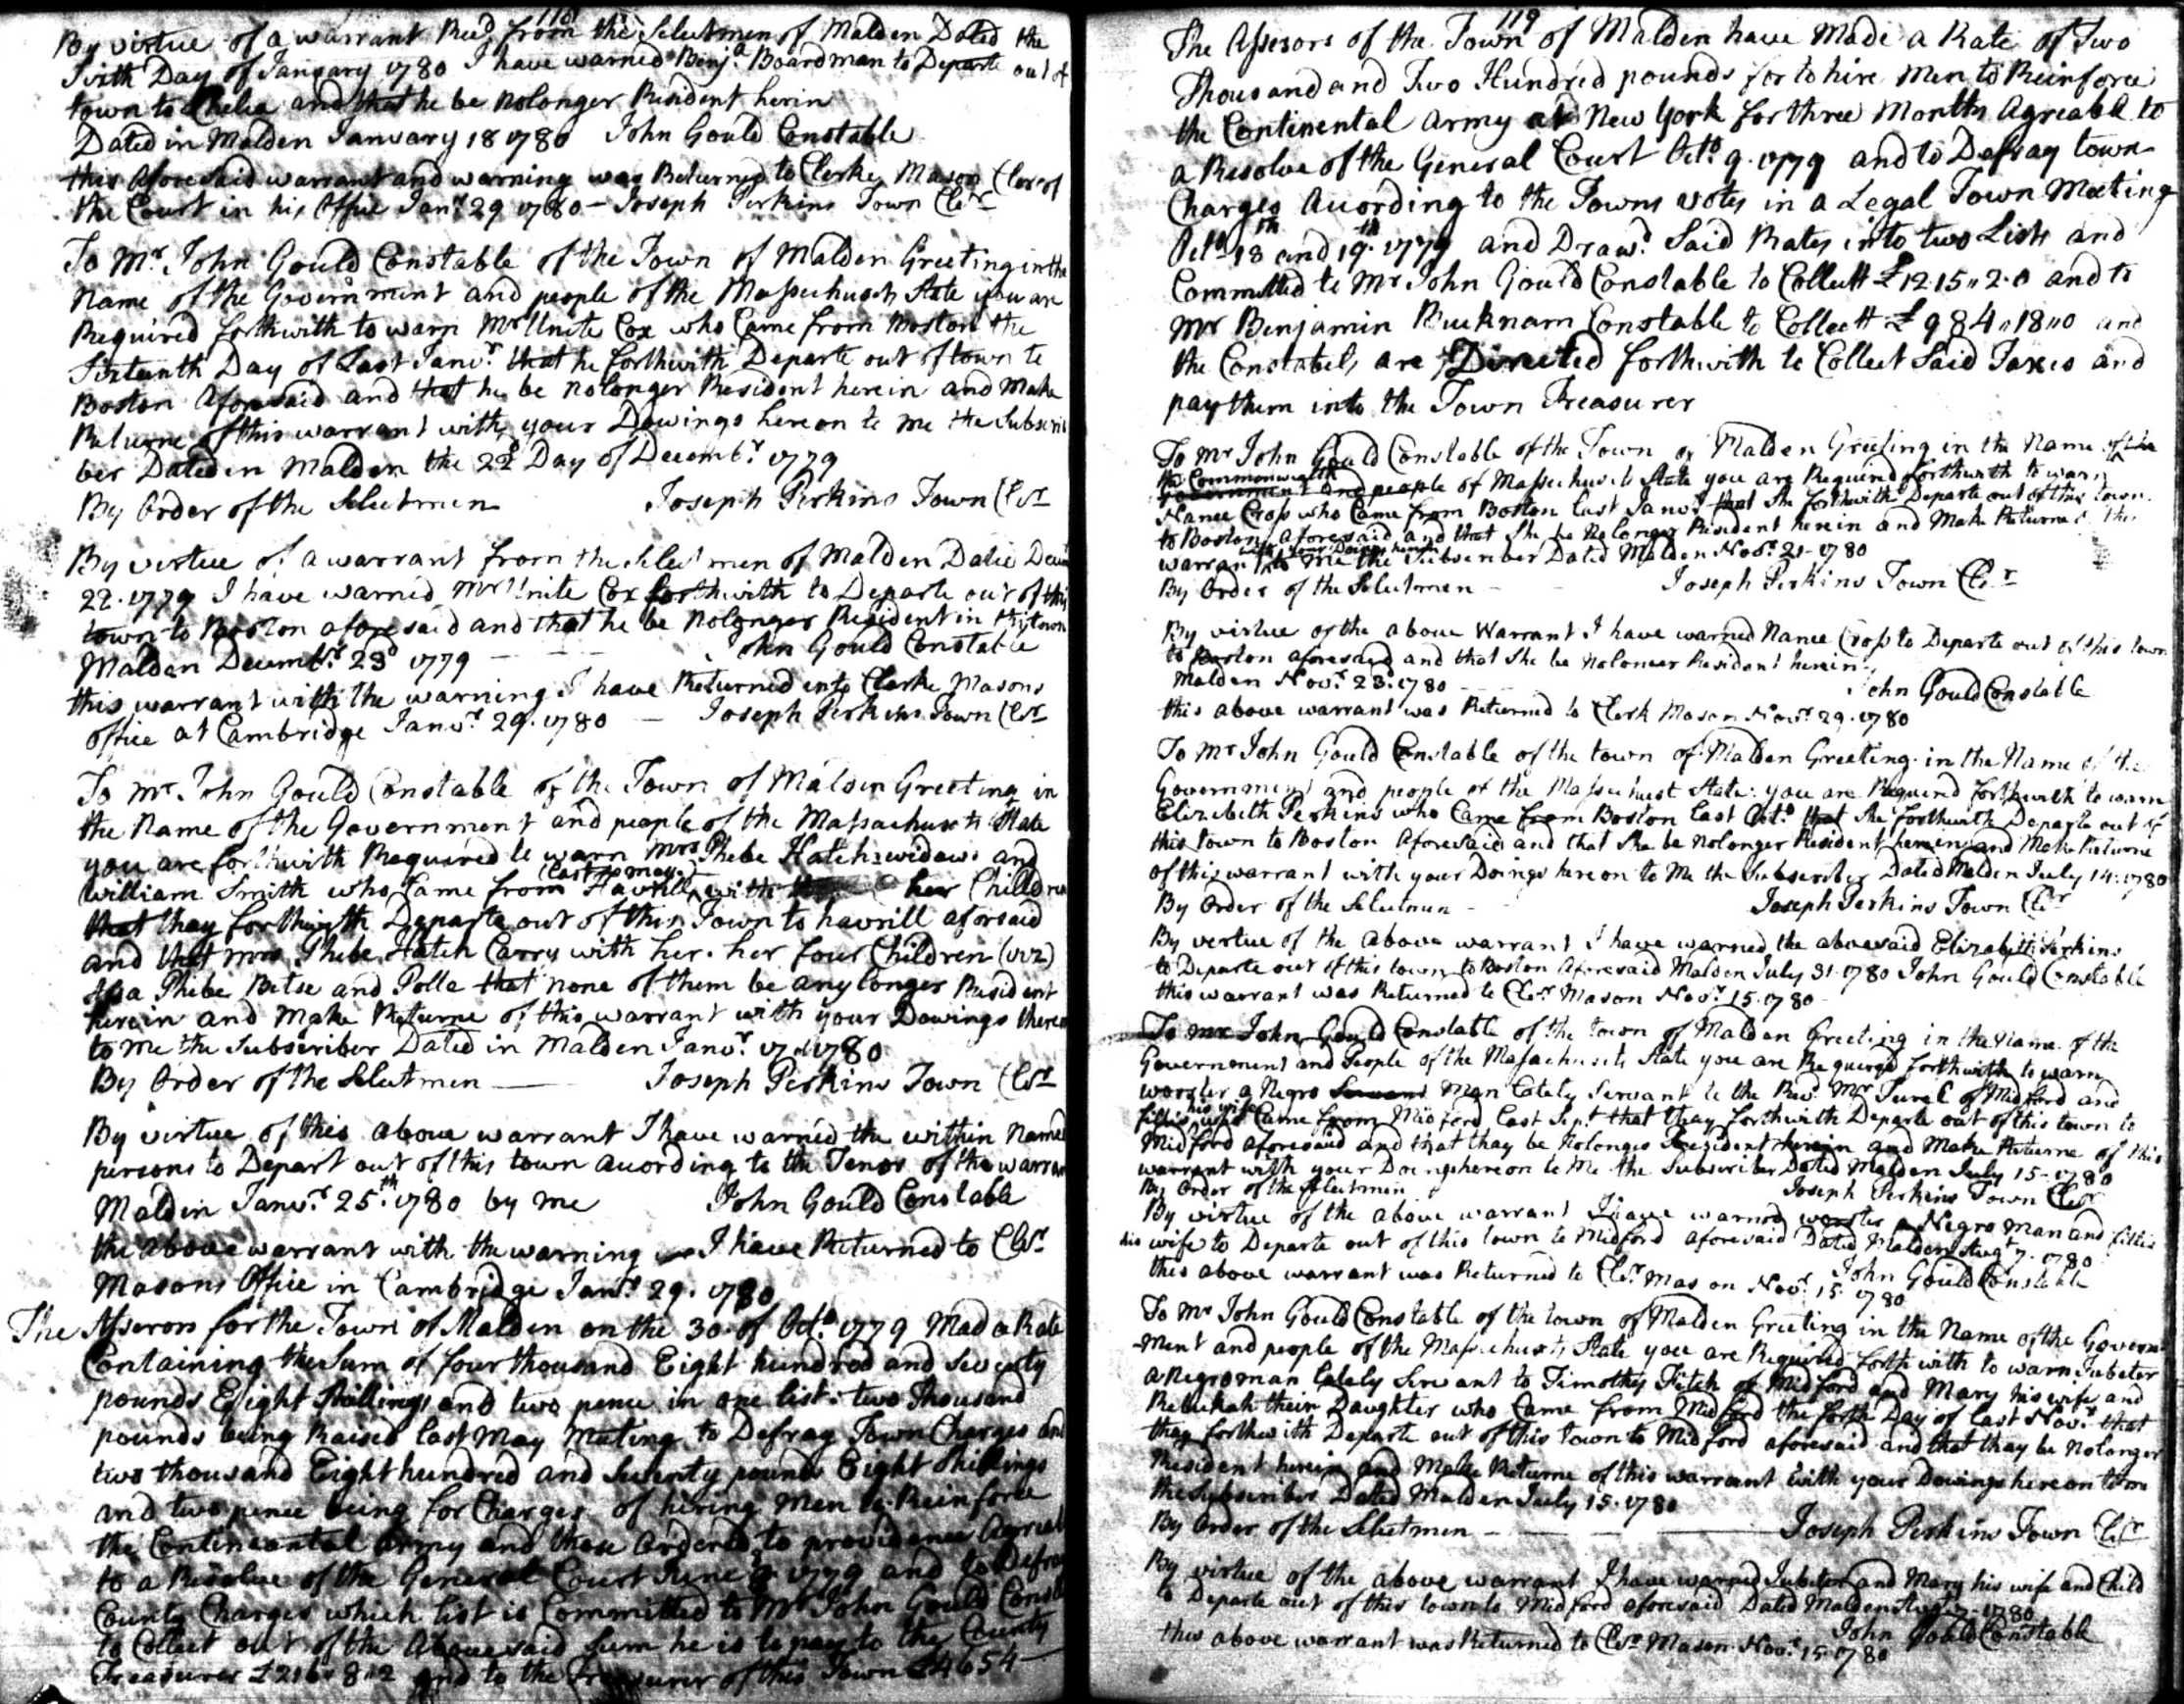 118
By virtue of a warrant Recd from the Selectmen of Malden Dated the
Sixth Day of January 1780 I have warned Benja Boardman to Departe out of
town to Chelse and that he be nolonger Resident herin
Dated in Malden January 18 1780 John Gould Constable
this Aforesaid warrant and warning was Returned to Clerke Mason Cler of
the Court in his Office Janr 29 1780 - Joseph Perkins Town Clr
To Mr John Gould Constable of the Town of Malden Greeting in the
Name of the Government and people of the Massachusets State you are
Required forthwith to warn Mr Unite Cox who Came from Boston the
Sixteenth Day of Last Janr that he forthwith Departe out of town to
Boston Aforesaid and that he be nolonger Resident herein and Make
Returne of this warrant with your Dowings hereon to me the Subscri
ber Dated in Malden the 22d Day of Decembr 1779
By Order of the Selectmen Joseph Perkins Town Clr
By vertue of a warrant from the Selectmen of Malden Datid Decm
22. 1779 I have warned Mr Unite Cox forthwith to Departe out of this
town to Boston aforesaid and that he be Nolonger Resident in this town
Malden Decembr 23d 1779 - John Gould Constable
this warrant with the warning I have Returned into Clarke Masons
office at Cambridge Janr 29. 1780 - Joseph Perkins Town Clr
To mr John Gould Constable of the Town of Malden Greeting in
the Name of the Government and people of the Massachusets State
you are forthwith Required to warn Mrs Phebe Hatch widow and
(Last may)
William Smith who Came from Havrill with her Children
that thay forthwith Departe out of this Town to havrill aforsaid
and that mrs Phebe Hatch Carry with her. her four Children (viz)
Phebe Betse and Polle that none of them be any longer Resident
herein and Make Returne of this warrant with your Dowings thereon
to me the Subscriber Dated in Malden Janr 17 1780
By Order of the Selectmen - Joseph Perkins Town Clr
By virtue of this above warrant I have warned the within Named
persons to Depart out of this town acording to the Tenor of the warran
Maldin Janr 25th 1780 by me John Gould Constable
the above warrant with the warning I have Returned to Clr
Masons Office in Cambridge Janr 29. 1780
The Assesors for the Town of Malden on the 30 of Octo 1779 Mad a Rate
Containing the Sum of four thousand Eight hundred and Seventy
pounds Eight Shillings and two pence in one list: two thousand
pounds being Raised last May Meeting to Defray Town Charges and
two thousand Eight hundred and Seventy pounds Eight Shillings
and two pence being for Charges of hireing Men to Reinforce
the Contineantal Army and those Ordered to providence Agreeab
to a Resolve of the General Court June 1779 and to Defray
County Charges which list is Committed to Mr John Gould Const
to Collect out of the Abovesaid Sum he is to pay to the County
Treasurer £216 8 2 and to the Treasurer of this Town £4654
119
The Assesors of the Town of Malden have Made a Rate of Two
Thousand and Two Hundred pounds for to hire Men to Reinforce
the Continental Army at New York for three Months Agreabl to
a Resolve of the General Court Octo 9. 1779 and to Defray town
Charges Acording to the Towns votes in a Legal Town Meeting
Octo 18th and 19th 1779 and Drawd Said Rates into two Lists and
Committed to Mr John Gould Constable to Collectt £12.15"2.0 and to
Mr Benjamin Bucknam Constable to Collectt £984"18"0 and
the Constabels are Directed forthwith to Collect Said Taxes and
pay them into the Town Treasurer
To Mr John Gould Constable of the Town of Malden Greeting in the Name of the
the Commonwealth
Government and people of Massachusets State you are Required forthwith to warn
Nance Cross who Came from Boston last Janr that She forthwith Departe out of this town
to Boston aforesaid and that She be Nolonger Resident herein and Make Returne of this
with your Doings hereon
warrant to me the Subscriber Dated Malden Novr 21- 1780
By Order of the Selectmen - Joseph Perkins Town Clr
By virtue of the above Warrant I have warned Nance Cross to Departe out of this town
to Boston aforesaid and that She be noloncer Resident herein
Malden Novr 23. 1780 - John Gould Constable
this above warrant was Returned to Clerk Mason Novr 29. 1780
To Mr John Gould Constable of the town of Malden Greeting in the Name of the
Government and people of the Massachuset State: you are Requird forthwith to warn
Elizibeth Perkins who Came from Boston Last Octo that She forthwith Departe out of
this town to Boston Aforesaid and that She be nolonger Resident herein and Make Returne
of this warrant with your Doings hereon to Me the Subscriber Dated Malden July 14. 1780
By Order of the Selectmen - Joseph Perkins Town Clr
By vertue of the above warrant I have warned the abovesaid Elizabeth Perkins
to Departe out of this town to Boston Aforesaid Malden July 31. 1780 John Gould Constable
this warrant was Returned to Clr Mason Novr 15. 1780
To mr John Gould Constable of the town of Malden Greeting in the Name of the
Government and People of the Massachusets State you are Requierd forthwith to warn
worster a Negro Servant Man Lately Servant to the Revd Mr Turel of Midford and
his wife
fillis who Came from Midford Last Sept that thay forthwith Departe out of this town to
Midford aforesaid and that thay be Nolonger Resident herein and Make Returne of this
warrant with your Doings hereon to Me the Subscriber Dated Malden July 15- 1780
By Order of the Selectmen Joseph Perkins Town Clr
By virtue of the above warrant I have warned worster a Negro man and fillis
his wife to Departe out of this town to Midford aforesaid Dated Malden Augt 7. 1780
John Gould Constable
this above warrant was Returned to Clr Mason Novr 15. 1780
To Mr John Gould Constable of the town of Malden Greeting in the Name of the Govern
ment and people of the Massachusets State you are Required forthwith to warn Jubeter
a Negro man Lately Servant to Timothy Fitch of Midford and Mary his wife and
Rebekah their Daughter who Came from Midford the forth Day of last Novr that
thay forthwith Departe out of this town to Midford aforesaid and that thay be nolonger
Resident herein and Make Returne of this warrant with your Dowings hereon to me
the Subscriber Dated Malden July 15. 1780
By Order of the Selectmen - Joseph Perkins Town Clr
By virtue of the above warrant I have warned Jubeter and Mary his wife and Child
to Departe out of this town to Midford aforesaid Dated Malden Augt 7- 1780
John Gould Constable
this above warrant was Returned to Clr Mason Novr 15. 1780